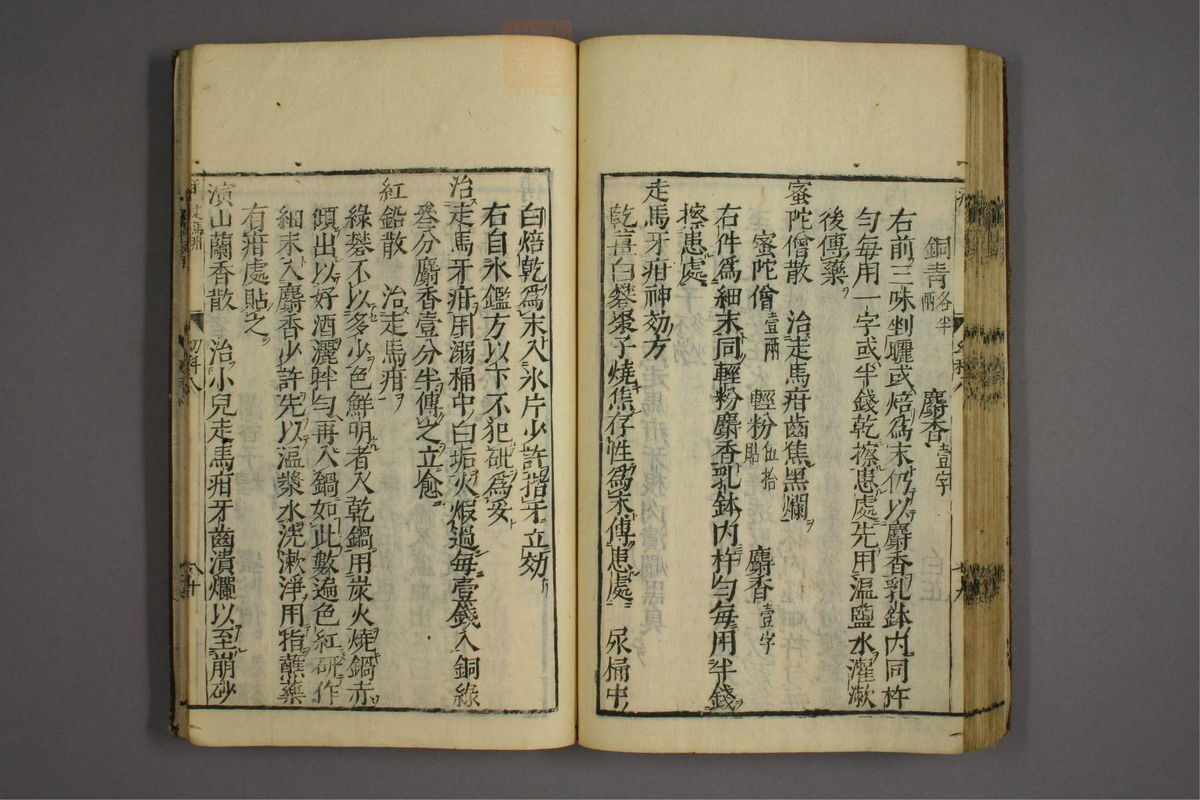 銅青各半兩　麝香壹字
右前三味剉曬或焙爲末仍以麝香乳鉢内同杵
勻毎用一字或半錢乾擦患處先用溫鹽水灌漱
後傅藥
蜜陀僧散　治走馬疳齒焦黑爛
蜜陀僧壹兩　輕粉伍拾貼　麝香壹字
右件爲細末同輕粉麝香乳鉢内杵勻毎用半錢
擦患處
走馬牙疳神効方
乾姜白礬棗子燒焦存性爲末傅患處　尿桶中
白焙乾爲末入氷片少許揩牙立効
右自氷鑑方以下不犯砒爲妥
治走馬牙疳用溺桶中白垢火煆過毎壹錢入銅綠
叄分麝香壹分半傅之立愈
紅鉛散　治走馬疳
綠礬不以多少色鮮明者入乾鍋用炭火燒鍋赤
傾出以好酒灑拌勻再入鍋如此數遍色紅研作
細末入麝香少許先以溫漿水洗漱淨用指蘸藥
有疳處貼之
演山蘭香散　治小兒走馬疳牙齒潰爛以至崩砂